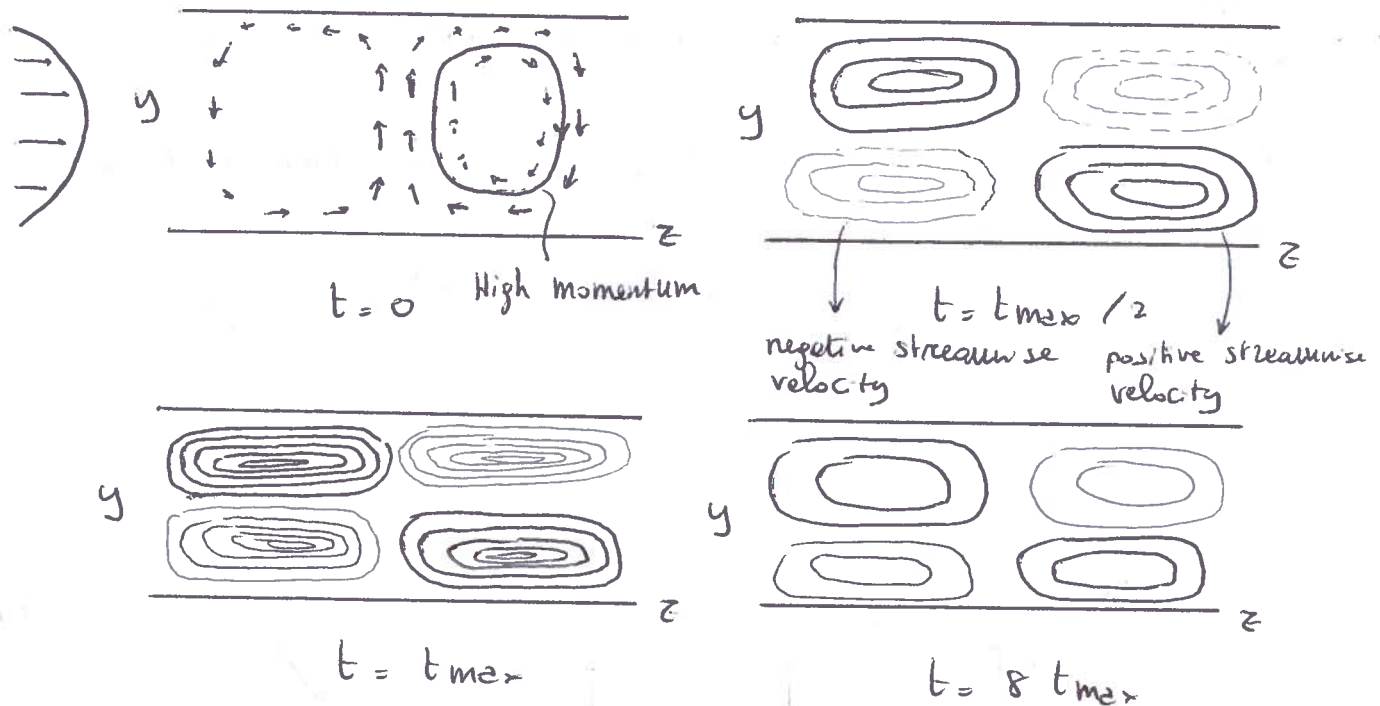 y
z
t = 0
High momentum
y
z
t = tmax / 2
negative streamwise
velocity
positive streamwise
velocity
y
z
t = tmax
y
z
t = 8 tmax